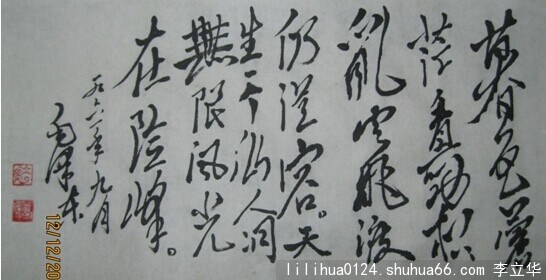 暮色苍
茫看劲松
亂云飛渡
仍從容。天
生一个仙人洞
無限风光
在险峰。
一九六一年九月
毛泽东
12/12/20
lilihua0124.shuhua66.com 李立华